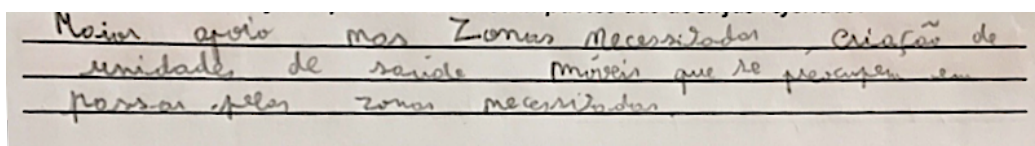 Maior apoio nas Zonas necessitadas criação de
unidades de saúde móveis que se preocupem em
passar pelas zonas necessitadas